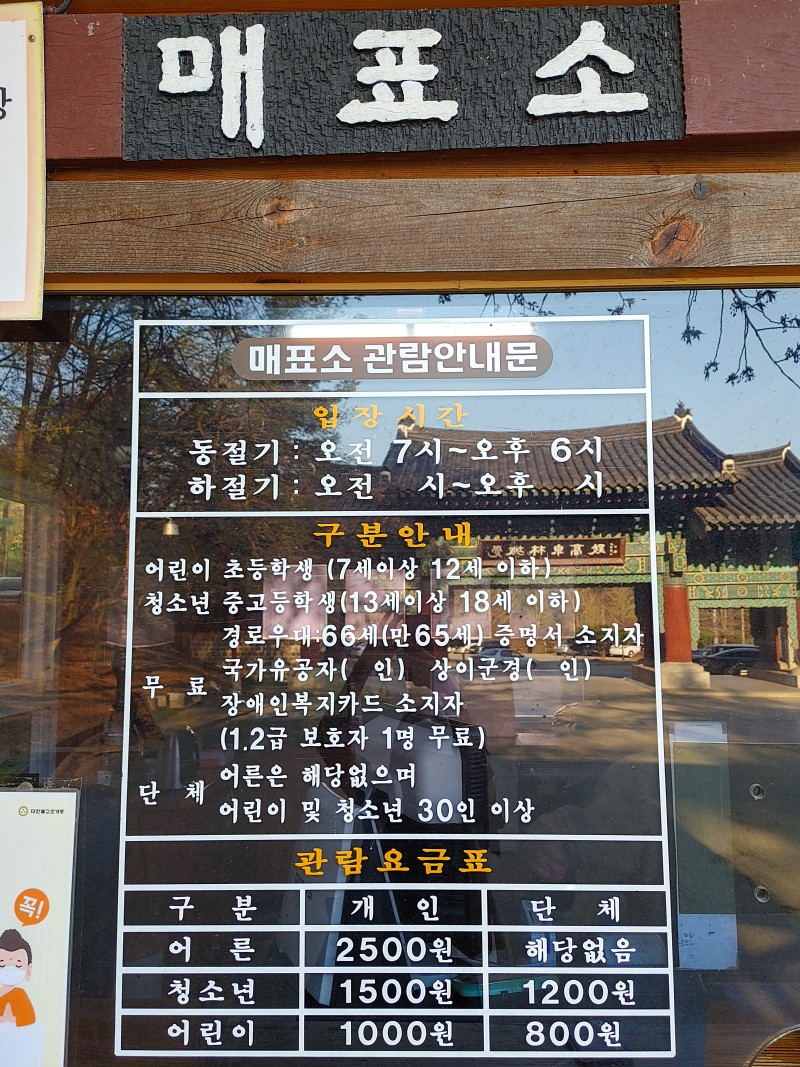 매표소
매표소 관람안내문
입장시간
동절기 : 오전 7시~오후 6시
하절기 : 오전 시~오후 시
구분안내
어린이 초등학생 (7세이상 12세 이하)
청소년 중고등학생(13세이상 18세 이하)
무료 경로우대:66세(만65세) 증명서 소지자
국가유공자( 인) 상이군경( 인)
장애인복지카드 소지자
(1.2급 보호자 1명 무료)
단체 어른은 해당없으며
어린이 및 청소년 30인 이상
관람요금표
구분 개인 단체
어른 2500원 해당없음
청소년 1500원 1200원
어린이 1000원 800원
대한불교조계종
꼭!